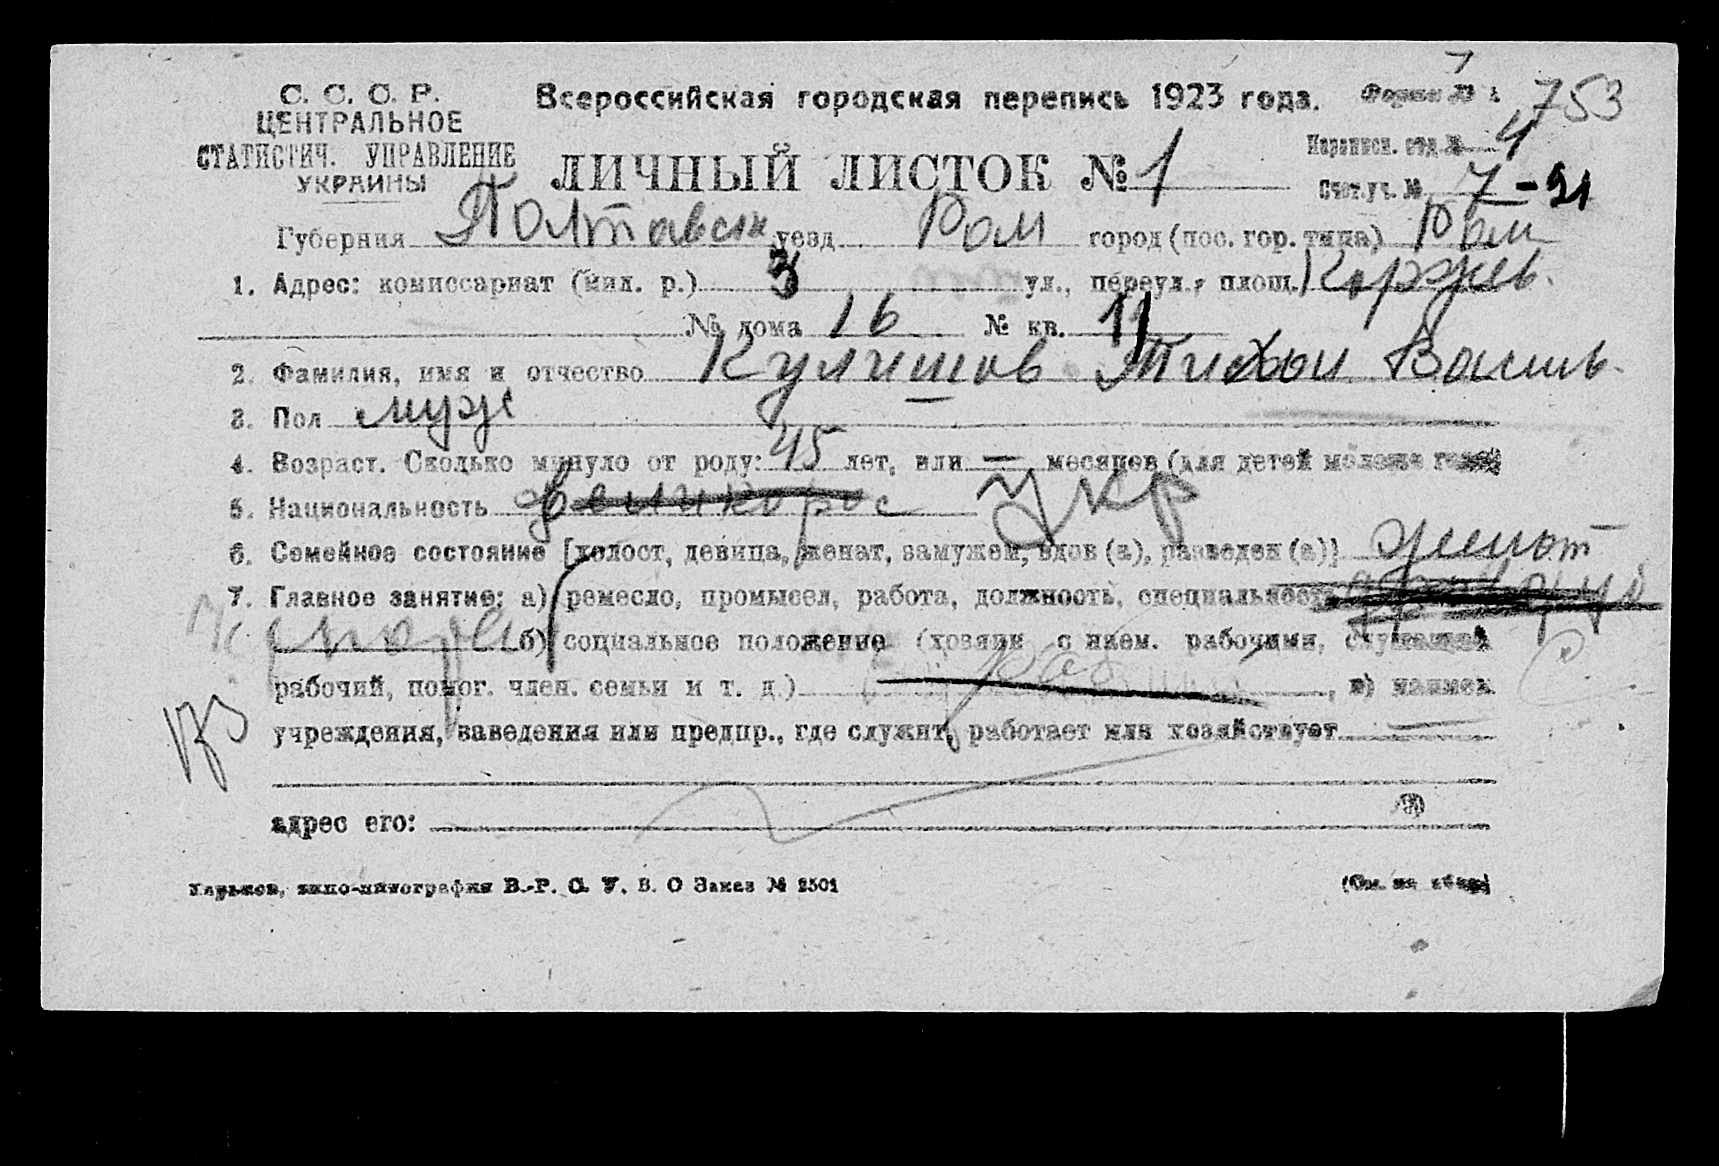 7
С. С. С. Р. Всероссийская городская перепись 1923 года. Форма № 1 753
ЦЕНТРАЛЬНОЕ
СТАТИСТИЧ. УПРАВЛЕНИЕ
УКРАИНЫ
ЛИЧНЫЙ ЛИСТОК № 1
Переписн. отд. № 4
Счет. уч. № 7 - 21
Губерния Полтавск уезд Ром город (пос. гор. типа) Ром
1. Адрес: комиссариат (мил. р.) 3 ул., переул., площ. Коржев.
№ дома 16 № кв. 11
2. Фамилия, имя и отчество Кулишов Тихон Василь.
3. Пол муж
4. Возраст. Сколько минуло от роду: 45 лет, или — месяцев (для детей моложе года)
5. Национальность великорос Укр
6. Семейное состояние [холост, девица, женат, замужем, вдов (а), разведен (а)] женат
7. Главное занятие: а) ремесло, промысел, работа, должность, специальность
б) социальное положение (хозяин с наем. рабочими, служащий
рабочий, помог. член. семьи и т. д.) , в) наимен.
учреждения, заведения или предпр., где служит, работает или хозяйствует
адрес его:
Харьков, типо-литография В.-Р. С. У. В. О Заказ № 2501 (См. на обор.)